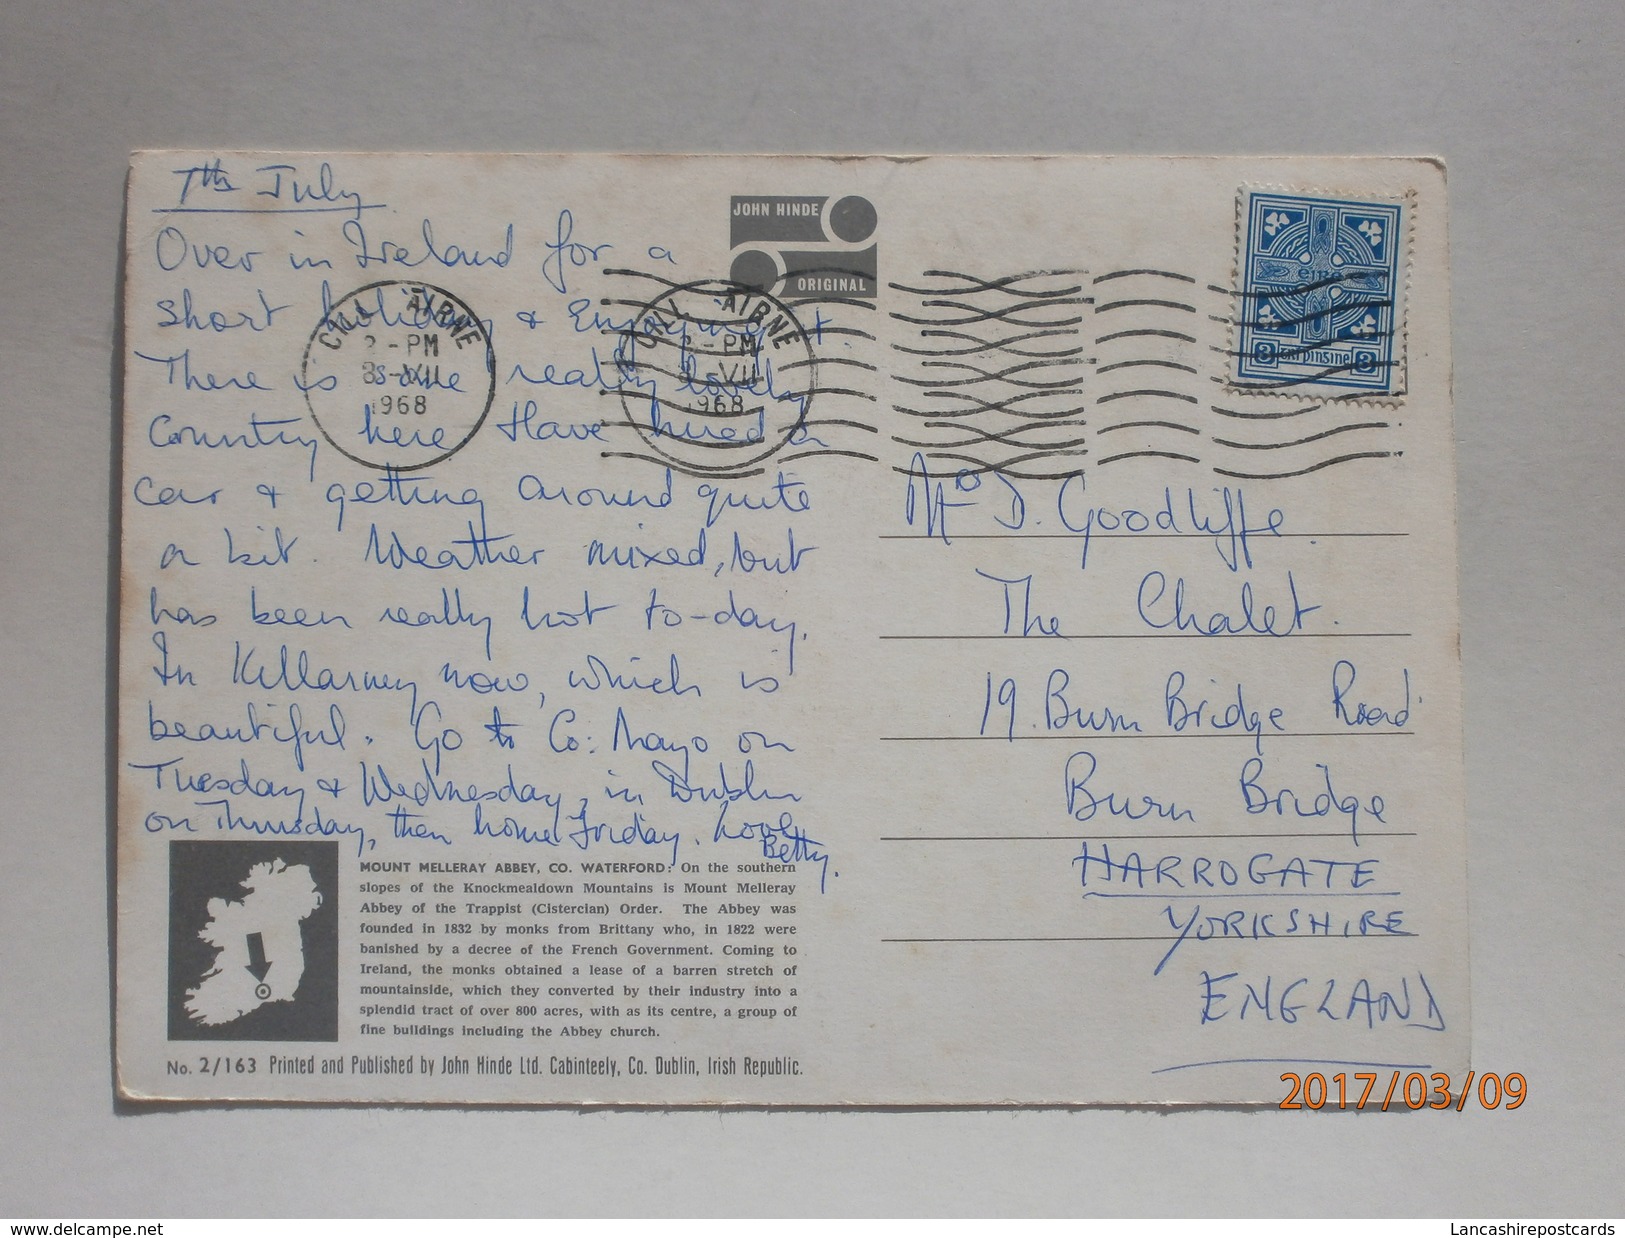 7th July
Over in Ireland for a
short holiday & Enjoying it.
There is some really lovely
Country here Have hired a
car & getting around quite
a bit. Weather mixed, but
has been really hot to-day.
In Killarney now, which is
beautiful. Go to Co: Mayo on
Tuesday & Wednesday, in Dublin
on Thursday, then home Friday. Love
Betty.
JOHN HINDE
ORIGINAL
CILL AIRNE
2-PM
8-VII
1968
CILL AIRNE
2-PM
8-VII
1968
EIRE
3 pinsine 3
Mrs D. Goodliffe.
The Chalet.
19. Burn Bridge Road
Burn Bridge
HARROGATE
YORKSHIRE
ENGLAND
MOUNT MELLERAY ABBEY, CO. WATERFORD: On the southern
slopes of the Knockmealdown Mountains is Mount Melleray
Abbey of the Trappist (Cistercian) Order. The Abbey was
founded in 1832 by monks from Brittany who, in 1822 were
banished by a decree of the French Government. Coming to
Ireland, the monks obtained a lease of a barren stretch of
mountainside, which they converted by their industry into a
splendid tract of over 800 acres, with as its centre, a group of
fine buildings including the Abbey church.
No. 2/163 Printed and Published by John Hinde Ltd. Cabinteely, Co. Dublin, Irish Republic.
2017/03/09
www.delcampe.net
Lancashirepostcards